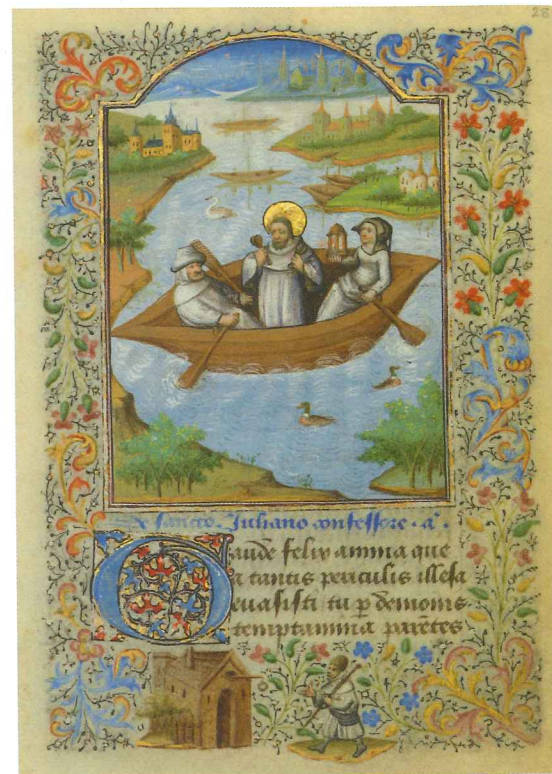 28
De sancto Juliano confessore . a .
Gaude felix anima que
a tantis periculis illesa
euasisti tu p demonis
temptamina parētes